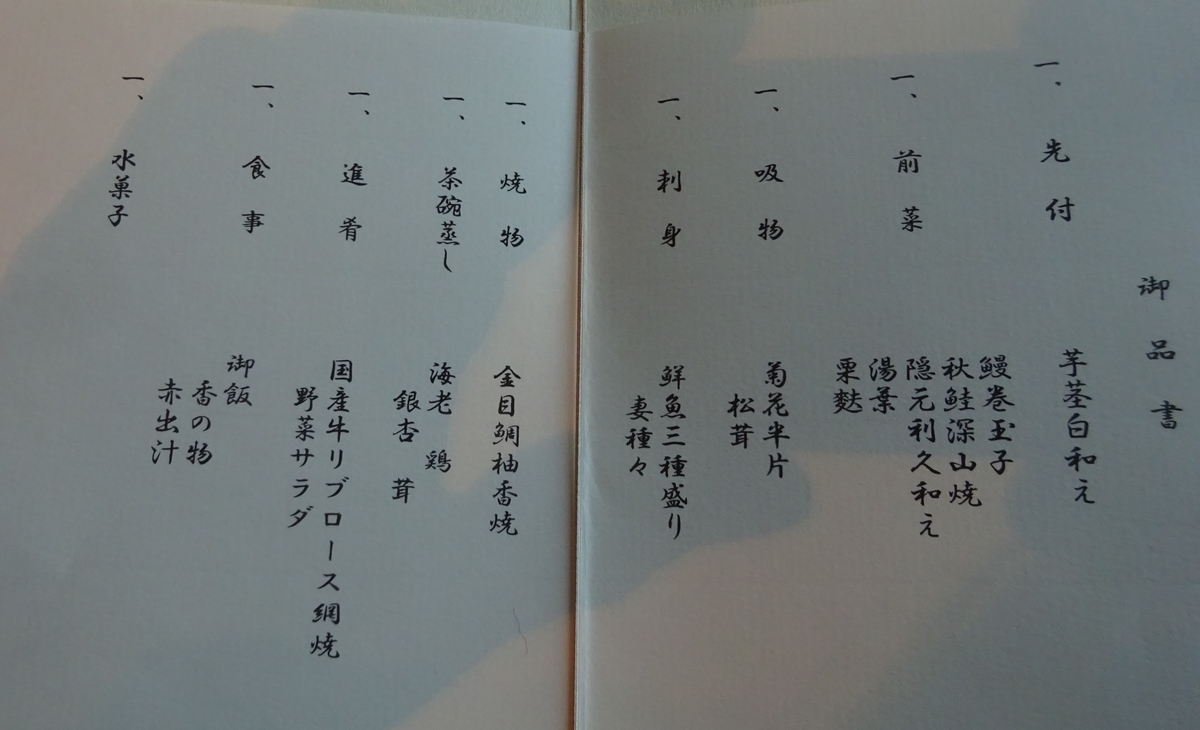 御品書
一、先付
芋茎白和え
一、前菜
鰻巻玉子
秋鮭深山焼
隠元利久和え
湯葉
栗麩
一、吸物
菊花半片
松茸
一、刺身
鮮魚三種盛り
妻種々
一、焼物
金目鯛柚香焼
一、茶碗蒸し
海老 鶏
銀杏 茸
一、進肴
国産牛リブロース網焼
野菜サラダ
一、食事
御飯
香の物
赤出汁
一、水菓子